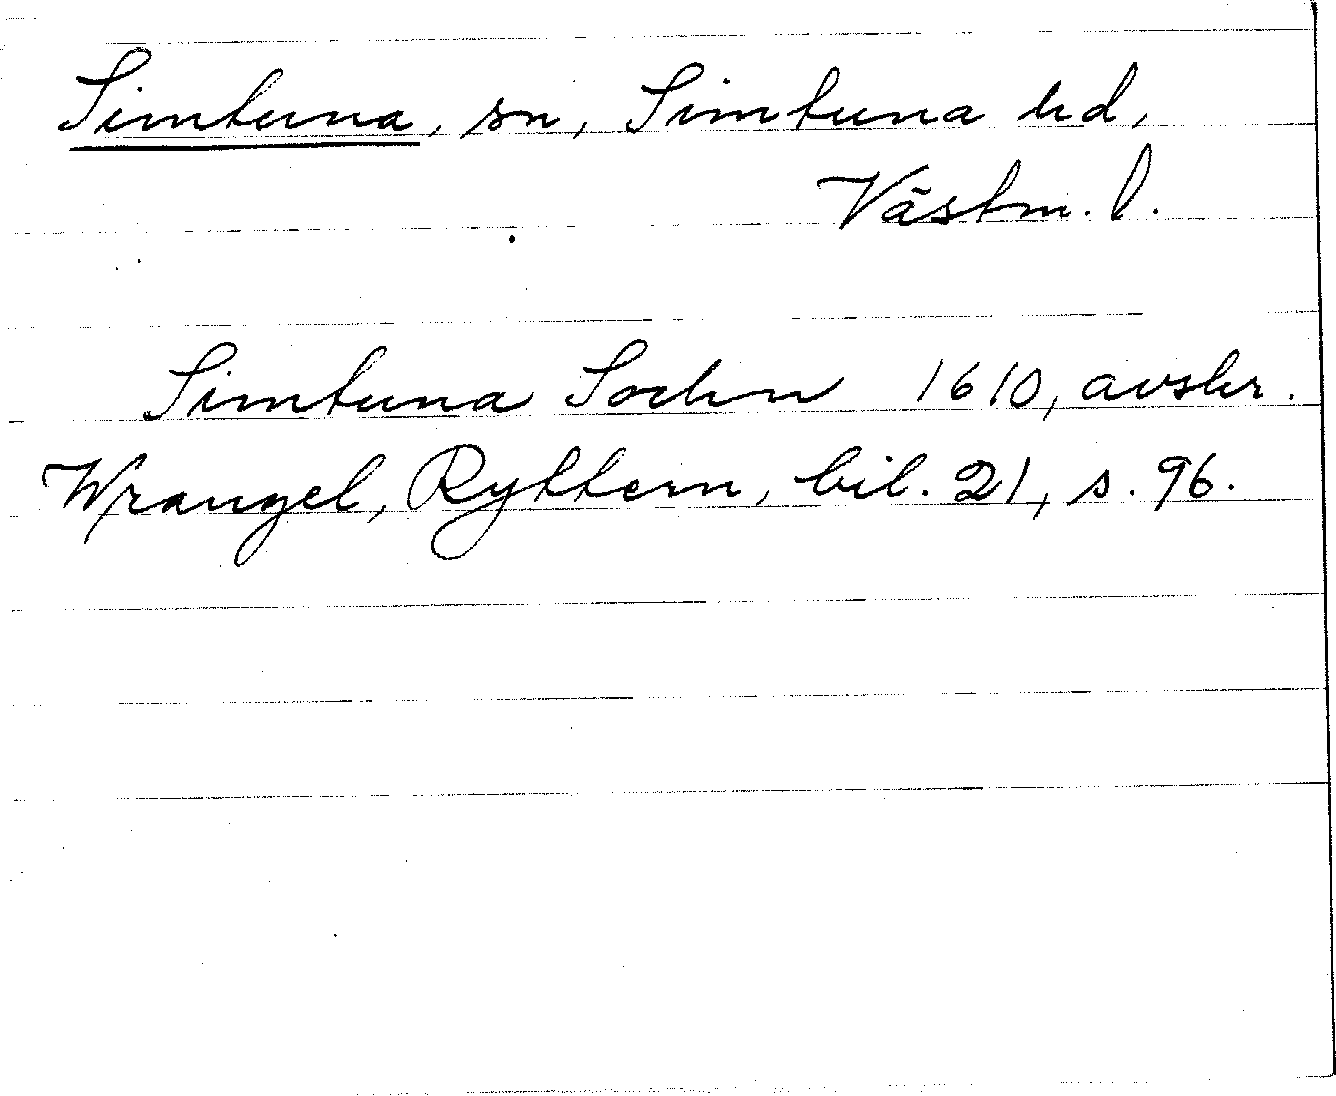 Simtuna, sn, Simtuna hd,
Västm. l.
Simtuna Sochn 1610, avskr.
Wrangel, Ryttern, bil. 21, s. 96.